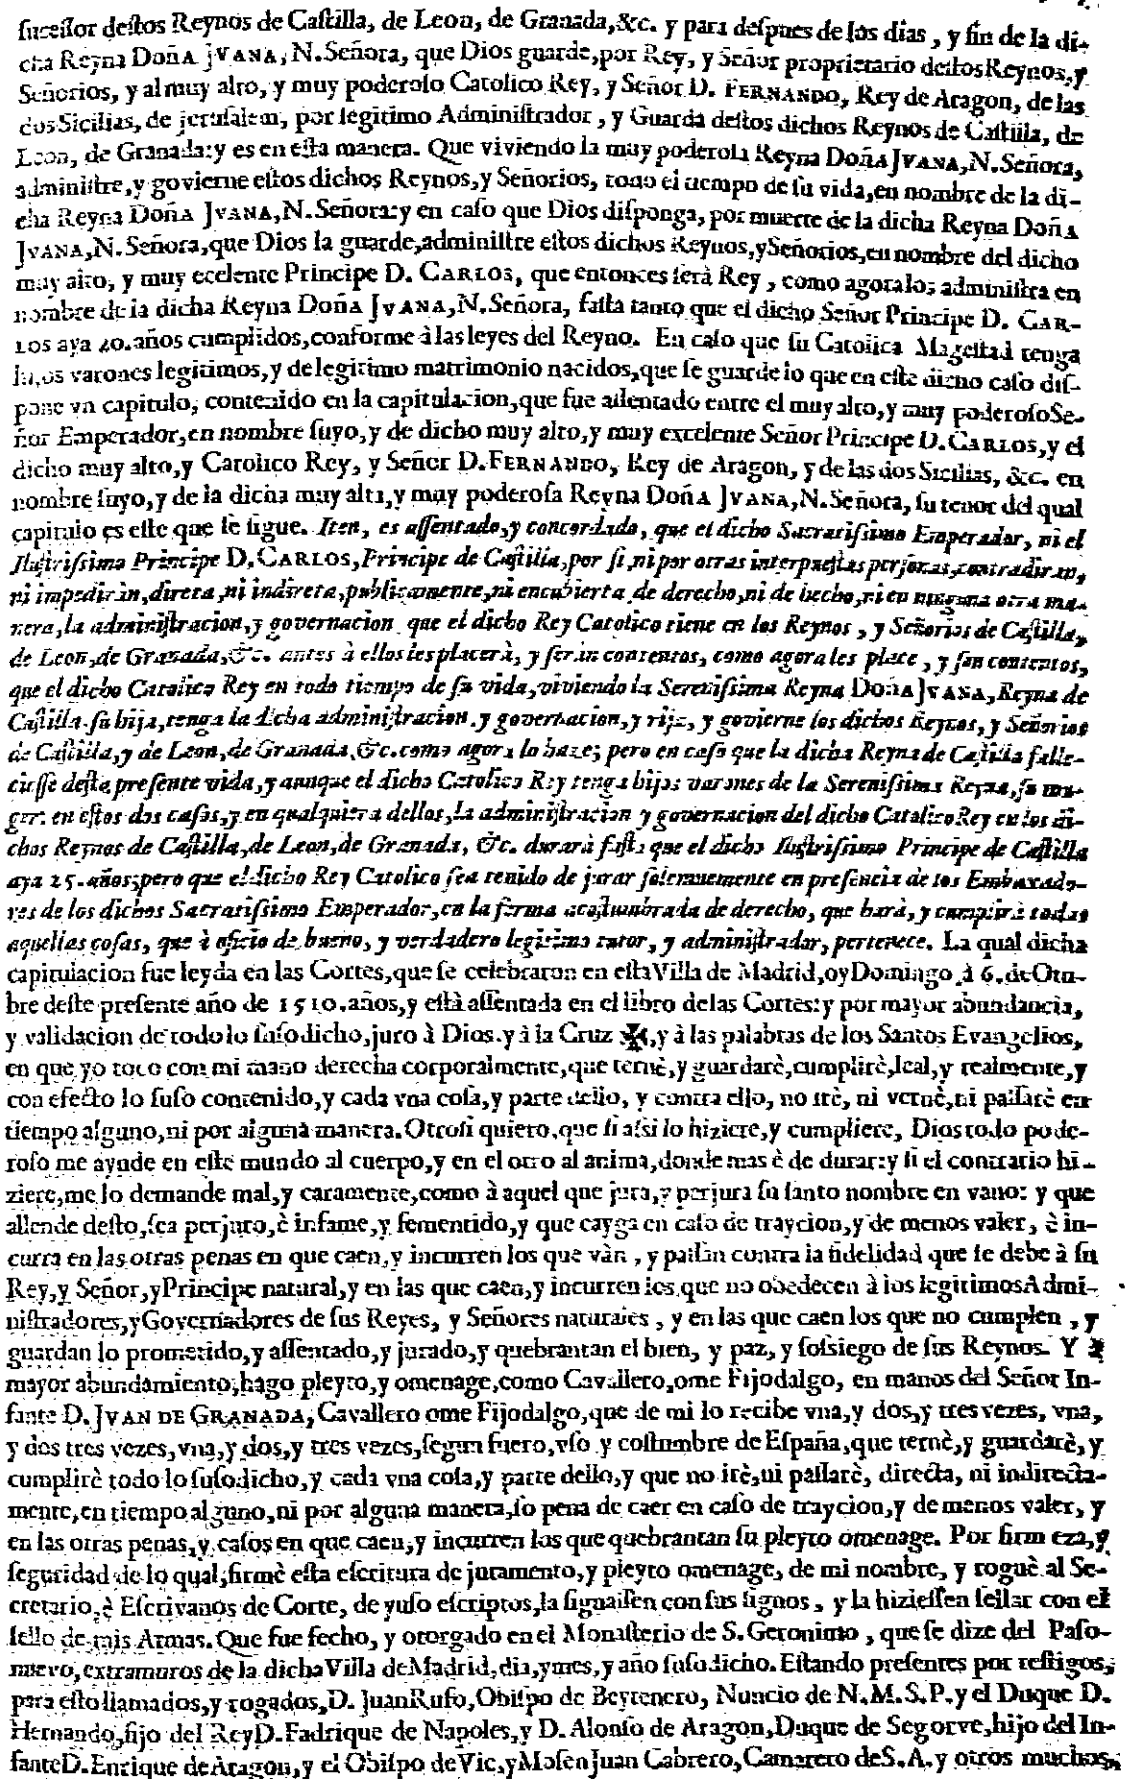 sucessor destos Reynos de Castilla, de Leon, de Granada,&c. y para despues de los dias, y fin de la di-
cha Reyna Doña JVANA, N. Señora, que Dios guarde, por Rey, y Señor proprietario destos Reynos, y
Señorios, y al muy alto, y muy poderoso Catolico Rey, y Señor D. FERNANDO, Rey de Aragon, de las
dos Sicilias, de jerusalem, por legitimo Administrador, y Guarda destos dichos Reynos de Castilla, de
Leon, de Granada: y es en esta manera. Que viviendo la muy poderosa Reyna Doña JVANA, N. Señora,
administre, y govierne estos dichos Reynos, y Señorios, todo el tiempo de su vida, en nombre de la di-
cha Reyna Doña JVANA, N. Señora: y en caso que Dios disponga, por muerte de la dicha Reyna Doña
JVANA, N. Señora, que Dios la guarde, administre estos dichos Reynos, y Señorios, en nombre del dicho
muy alto, y muy ecelente Principe D. CARLOS, que entonces serà Rey, como agora los administra en
nombre de la dicha Reyna Doña JVANA, N. Señora, fasta tanto que el dicho Señor Principe D. CAR-
LOS aya 20. años cumplidos, conforme à las leyes del Reyno. En caso que su Catolica Magestad tenga
hijos varones legitimos, y de legitimo matrimonio nacidos, que se guarde lo que en este dicho caso dis-
pone vn capitulo, contenido en la capitulacion, que fue assentado entre el muy alto, y muy poderoso Se-
ñor Emperador, en nombre suyo, y de dicho muy alto, y muy excelente Señor Principe D. CARLOS, y el
dicho muy alto, y Catolico Rey, y Señor D. FERNANDO, Rey de Aragon, y de las dos Sicilias, &c. en
nombre suyo, y de la dicha muy alta, y muy poderosa Reyna Doña JVANA, N. Señora, su tenor del qual
capitulo es este que se sigue. Iten, es assentado, y concordado, que el dicho Sacratissimo Emperador, ni el
Ilustrissimo Principe D. CARLOS, Principe de Castilla, por si, ni por otras interpuestas personas, contradiran,
ni impediràn, direta, ni indireta, publicamente, ni encubierta, de derecho, ni de hecho, ni en ninguna otra ma-
nera, la administracion, y governacion que el dicho Rey Catolico tiene en los Reynos, y Señorios de Castilla,
de Leon, de Granada, &c. antes à ellos les placerà, y seràn contentos, como agora les place, y son contentos,
que el dicho Catolico Rey en todo tiempo de su vida, viviendo la Serenissima Reyna Doña JVANA, Reyna de
Castilla su hija, tenga la dicha administracion, y governacion, y rija, y govierne los dichos Reynos, y Señorios
de Castilla, y de Leon, de Granada, &c. como agora lo haze; pero en caso que la dicha Reyna de Castilla falle-
ciesse desta presente vida, y aunque el dicho Catolico Rey tenga hijos varones de la Serenissima Reyna, su mu-
ger: en estos dos casos, y en qualquiera dellos, la administracion y governacion del dicho Catolico Rey en los di-
chos Reynos de Castilla, de Leon, de Granada, &c. durarà fasta que el dicho Ilustrissimo Principe de Castilla
aya 25. años; pero que el dicho Rey Catolico sea tenido de jurar solemnemente en presencia de los Embaxado-
res de los dichos Sacratissimo Emperador, en la forma acostumbrada de derecho, que harà, y cumplirà todas
aquellas cosas, que à oficio de bueno, y verdadero legitimo tutor, y administrador, pertenece. La qual dicha
capitulacion fue leyda en las Cortes, que se celebraron en esta Villa de Madrid, oy Domingo à 6. de Otu-
bre deste presente año de 1510. años, y està assentada en el libro de las Cortes: y por mayor abundancia,
y validacion de todo lo susodicho, juro à Dios. y à la Cruz ✠, y à las palabras de los Santos Evangelios,
en que yo toco con mi mano derecha corporalmente, que ternè, y guardarè, cumplirè, leal, y realmente, y
con efecto lo suso contenido, y cada vna cosa, y parte dello, y contra ello, no irè, ni vernè, ni passarè en
tiempo alguno, ni por alguna manera. Otrosi quiero, que si assi lo hiziere, y cumpliere, Dios todo pode-
roso me ayude en este mundo al cuerpo, y en el otro al anima, donde mas è de durar: y si el contrario hi-
ziere, me lo demande mal, y caramente, como à aquel que jura, y perjura su santo nombre en vano: y que
allende desto, sea perjuro, è infame, y fementido, y que cayga en caso de traycion, y de menos valer, è in-
curra en las otras penas en que caen, y incurren los que vàn, y passan contra la fidelidad que se debe à su
Rey, y Señor, y Principe natural, y en las que caen, y incurren los que no obedecen à los legitimos Admi-
nistradores, y Governadores de sus Reyes, y Señores naturales, y en las que caen los que no cumplen, y
guardan lo prometido, y assentado, y jurado, y quebrantan el bien, y paz, y sossiego de sus Reynos. Y à
mayor abundamiento, hago pleyto, y omenage, como Cavallero, ome Fijodalgo, en manos del Señor In-
fante D. JVAN DE GRANADA, Cavallero ome Fijodalgo, que de mi lo recibe vna, y dos, y tres vezes, vna,
y dos tres vezes, vna, y dos, y tres vezes, segun fuero, vso y costumbre de España, que ternè, y guardarè, y
cumplirè todo lo susodicho, y cada vna cosa, y parte dello, y que no irè, ni passarè, directa, ni indirecta-
mente, en tiempo alguno, ni por alguna manera, so pena de caer en caso de traycion, y de menos valer, y
en las otras penas, y casos en que caen, y incurren los que quebrantan su pleyto omenage. Por firmeza, y
seguridad de lo qual, firmè esta escritura de juramento, y pleyto omenage, de mi nombre, y roguè al Se-
cretario, è Escrivanos de Corte, de yuso escriptos, la signassen con sus signos, y la hiziessen sellar con el
sello de mis Armas. Que fue fecho, y otorgado en el Monasterio de S. Geronimo, que se dize del Paso-
nuevo, extramuros de la dicha Villa de Madrid, dia, y mes, y año susodicho. Estando presentes por testigos,
para esto llamados, y rogados, D. Juan Rufo, Obispo de Beytenero, Nuncio de N. M. S. P. y el Duque D.
Hernando, fijo del Rey D. Fadrique de Napoles, y D. Alonso de Aragon, Duque de Segorve, hijo del In-
fante D. Enrique de Aragon, y el Obispo de Vic, y Mosen Juan Cabrero, Camarero de S. A. y otros muchos,